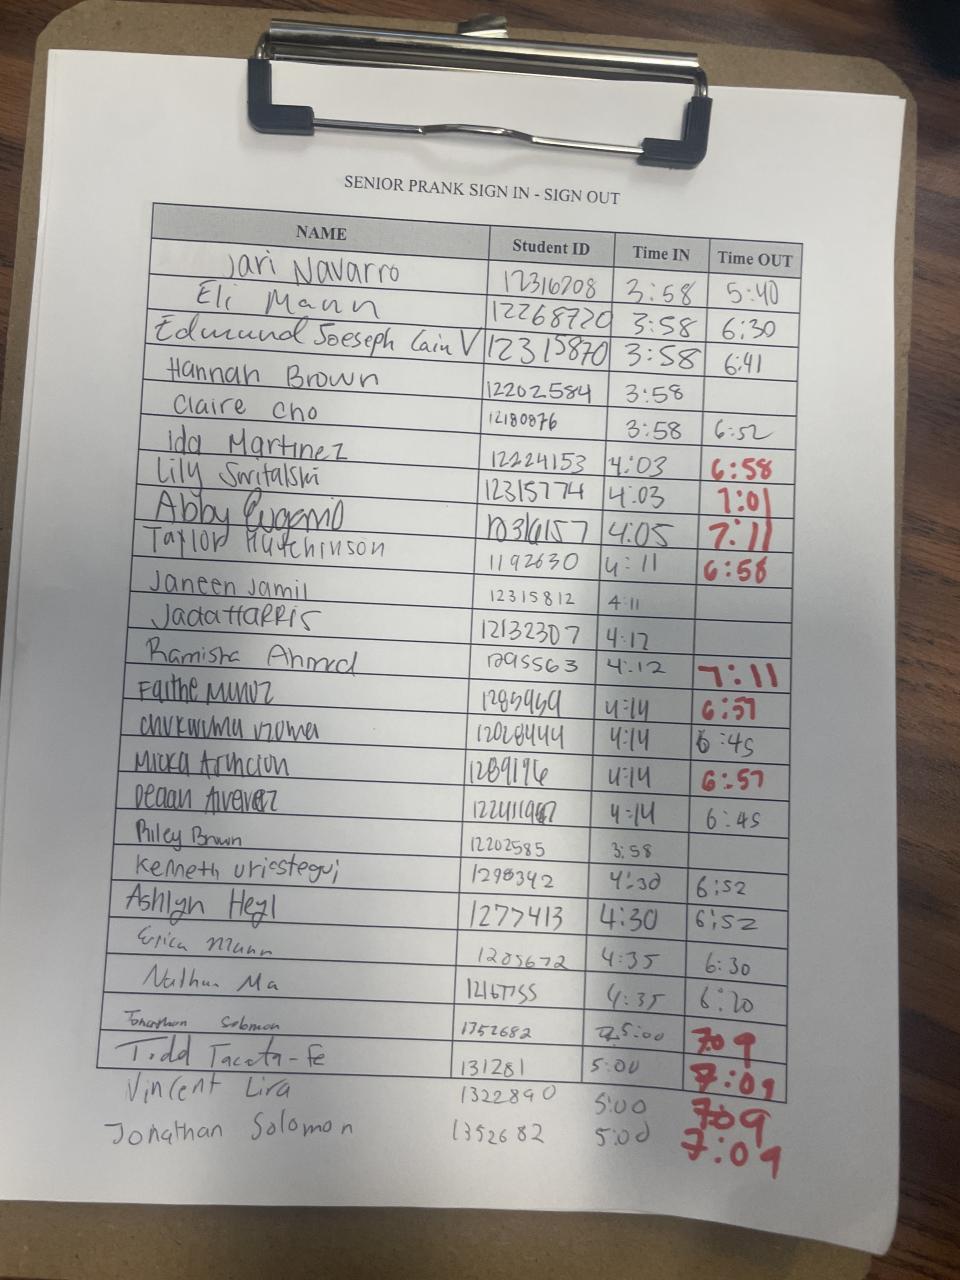 SENIOR PRANK SIGN IN - SIGN OUT
NAME Student ID Time IN Time OUT
Jari Navarro 12316208 3:58 5:40
Eli Mann 12268720 3:58 6:30
Edmund Joeseph Cain V 12315870 3:58 6:41
Hannah Brown 12202584 3:58
Claire Cho 12180876 3:58 6:52
Ida Martinez 12224153 4:03 6:58
Lily Switalski 12315774 4:03 7:01
Abby Eugenio 4:05 7:11
Taylor Hutchinson 1192630 4:11 6:58
Janeen Jamil 12315812 4:11
Jada HARRIS 12132307 4:12
Ramisha Ahmed 1295563 4:12 7:11
Faithe Munoz 1285969 4:14 6:57
Chukwuma 12028444 4:14 6:45
Micka Asuncion 1289196 4:14 6:57
4:14 6:45
Riley Brown 12202585 3:58
Kenneth Uriostegui 1298342 4:30 6:52
Ashlyn Heyl 1277413 4:30 6:52
Erica Mann 1285672 4:35 6:30
Nathan Ma 4:35 6:20
Jonathan Solomon 1352682 5:00 709
Todd Tacata-Fe 131281 5:00 7:09
Vincent Lira 1322890 5:00 709
Jonathan Solomon 1352682 5:00 7:09